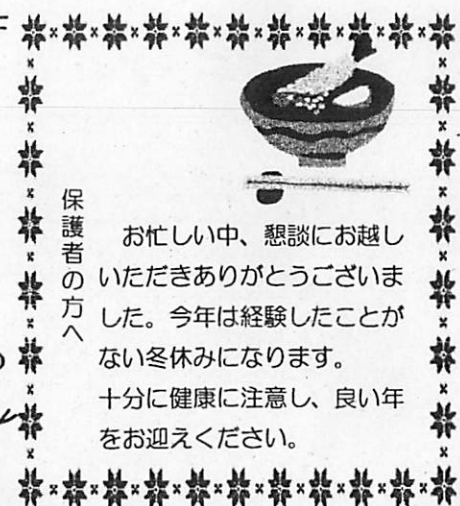 保護者の方へ
お忙しい中、懇談にお越し
いただきありがとうございま
した。今年は経験したことが
ない冬休みになります。
十分に健康に注意し、良い年
をお迎えください。